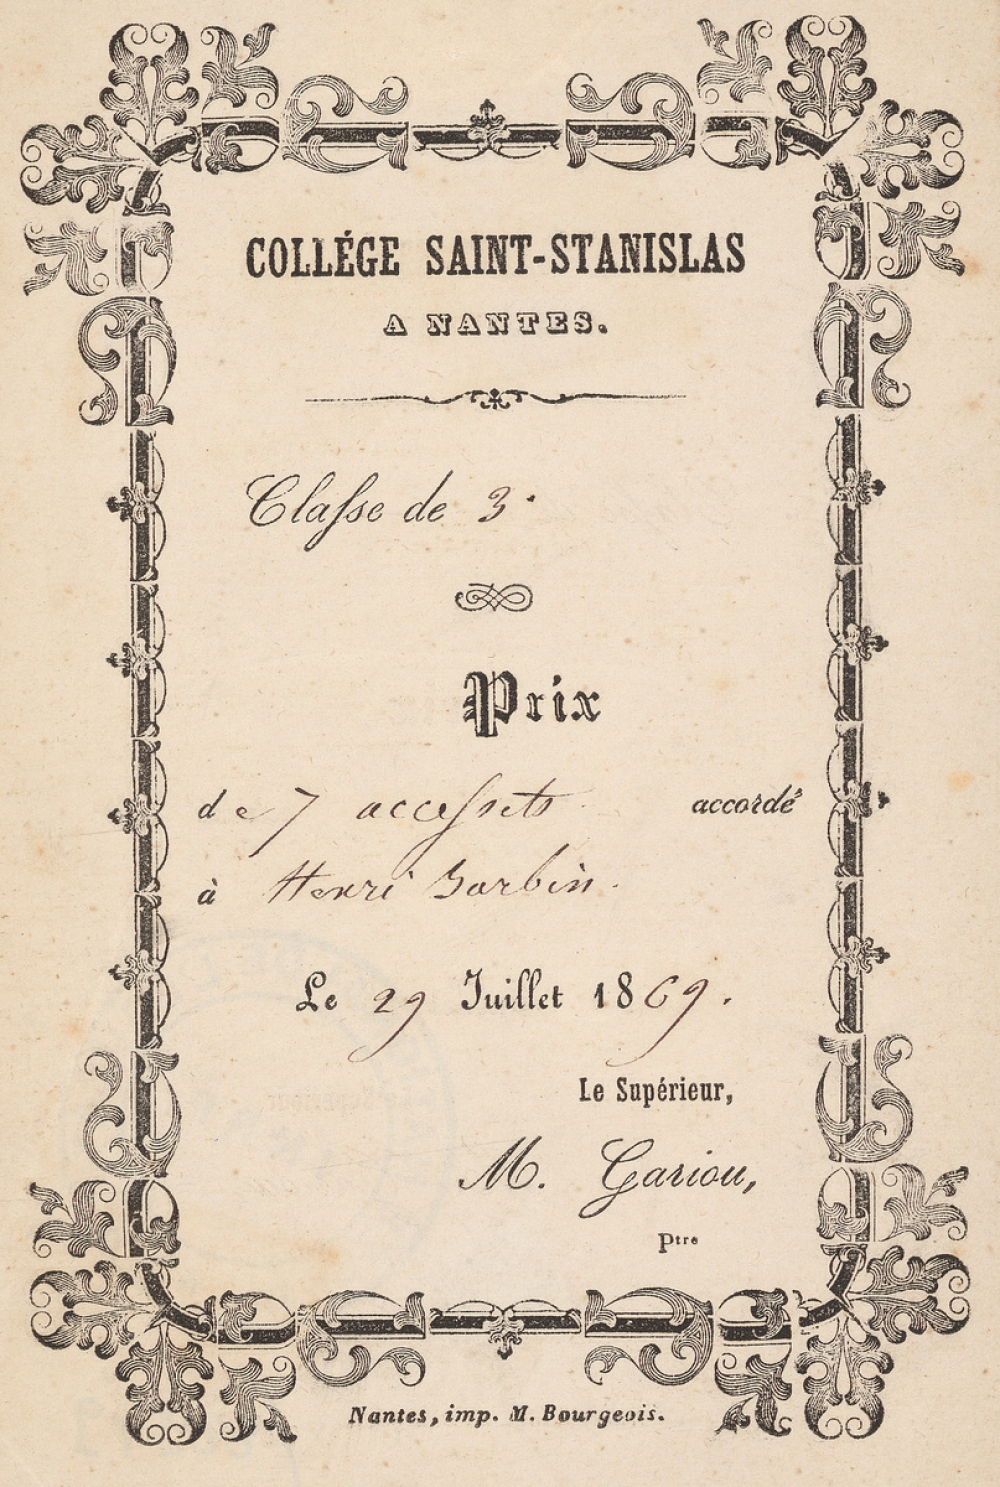 COLLÉGE SAINT-STANISLAS
A NANTES.
Classe de 3e
Prix
de 7 accessits accordé
à Henri Sorbin.
Le 29 Juillet 1869.
Le Supérieur,
M. Gariou,
Ptre
Nantes, imp. M. Bourgeois.